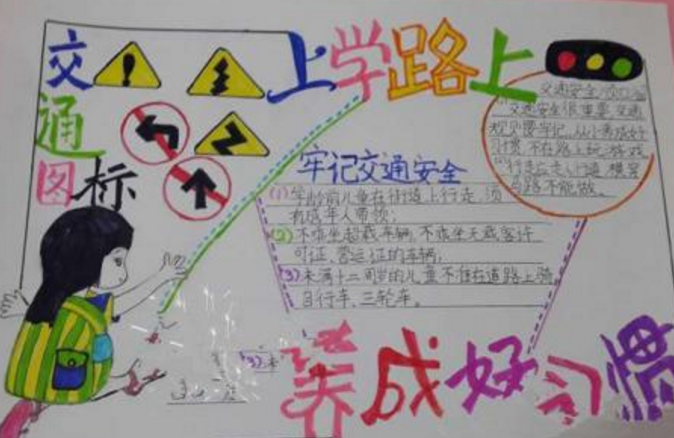 上学路上
交
通
图标
交通安全顺口溜
交通安全很重要,交通
规则要牢记,从小养成好
习惯,不在路上玩游戏
行走应走人行道
马路不能做。
牢记交通安全
(1)学龄前儿童在街道上行走,须
有成年人带领;
(2)不乘坐超载车辆,不乘坐无载客许
可证、营运证的车辆;
(3)未满十二周岁的儿童不准在道路上骑
自行车、三轮车。
(3).未
养成好习惯